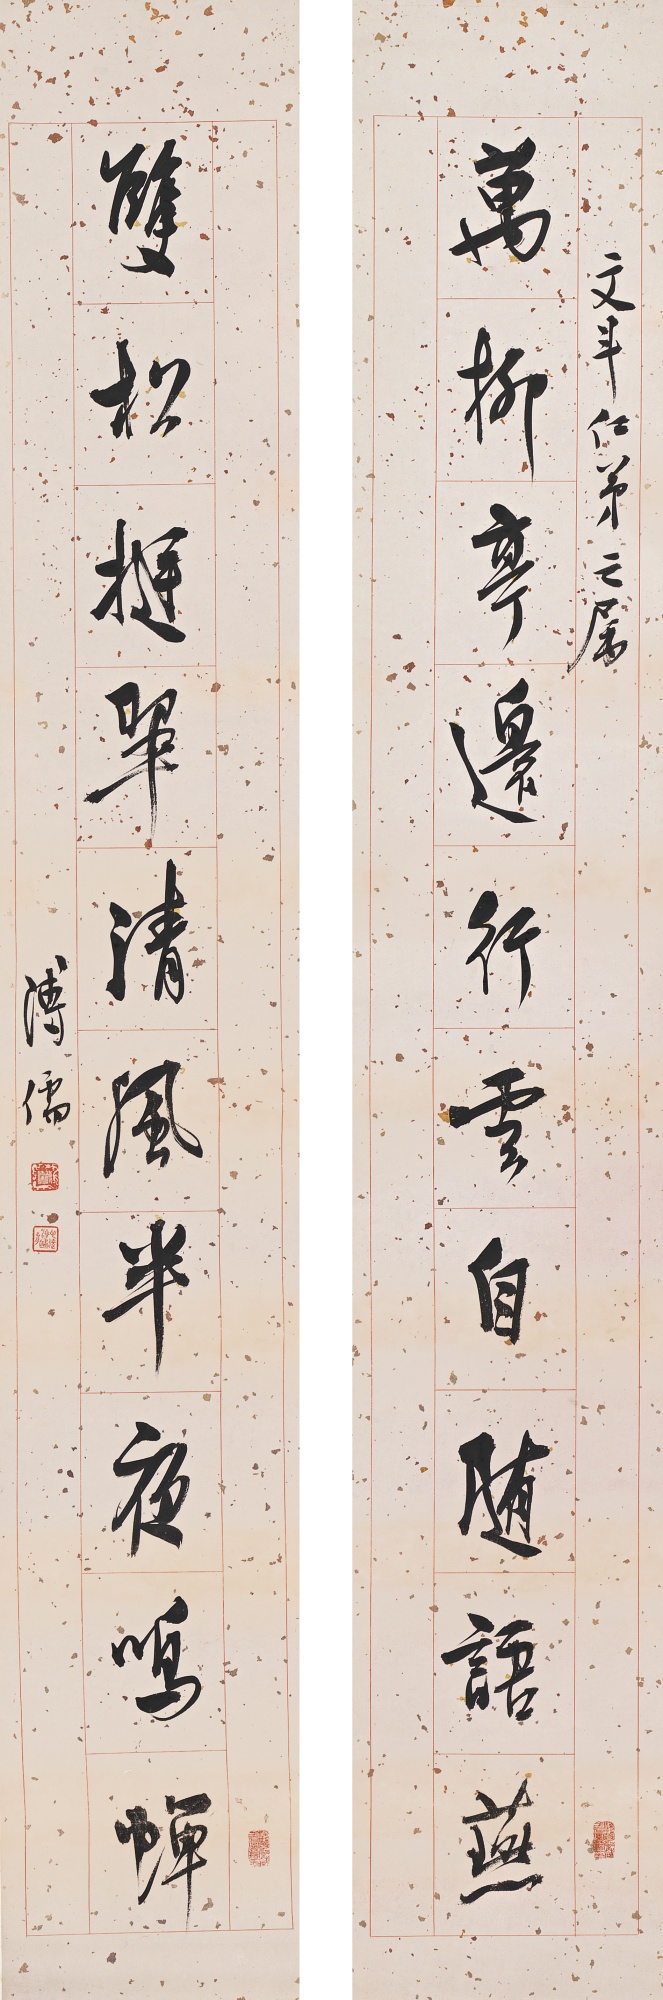 文斗仁弟之属
萬柳亭邊行雲自随語燕
雙松挺翠清風半夜鳴蟬
溥儒